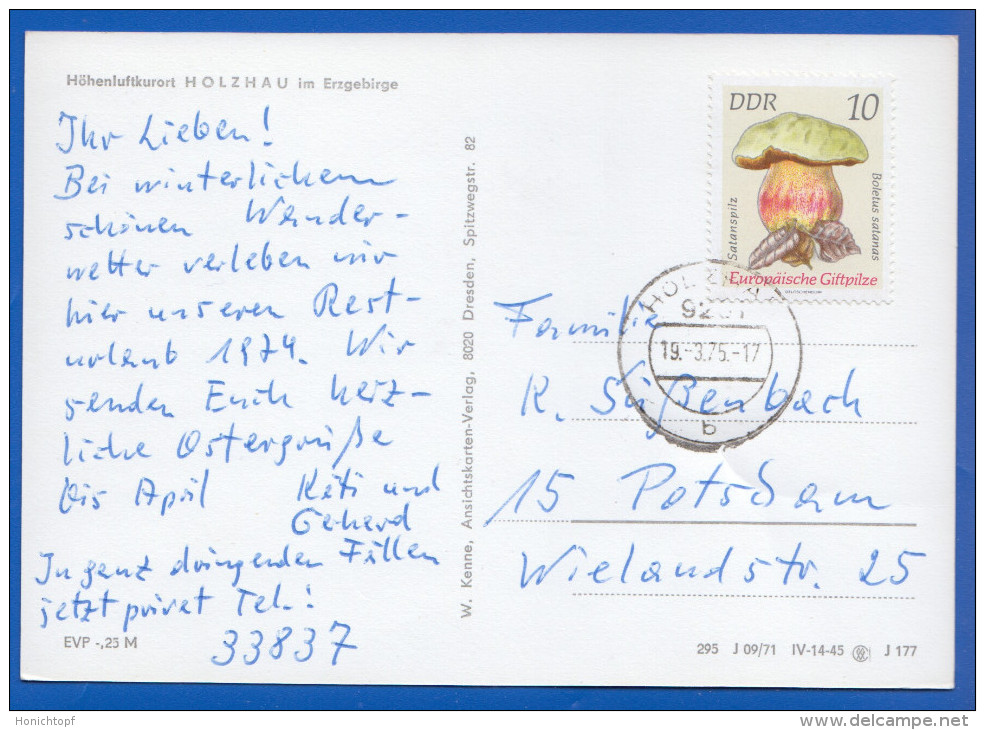 Höhenluftkurort HOLZHAU im Erzgebirge
Ihr Lieben!
Bei winterlichem
schönen Wander-
wetter verleben wir
hier unseren Rest-
urlaub 1974. Wir
senden Euch herz-
liche Ostergrüße
Bis April Käti und
Geherd
In ganz dringenden Fällen
jetzt privat Tel.!
33837
EVP -,25 M
W. Kenne, Ansichtskarten-Verlag, 8020 Dresden, Spitzwegstr. 82
DDR 10
Satanspilz
Boletus satanas
Europäische Giftpilze
HOLZHAU
19.-3.75.-17
b
Familie
R. Süßenbach
15 Potsdam
Wielandstr. 25
295 J 09/71 IV-14-45 J 177
Honichtopf
delcampe.net